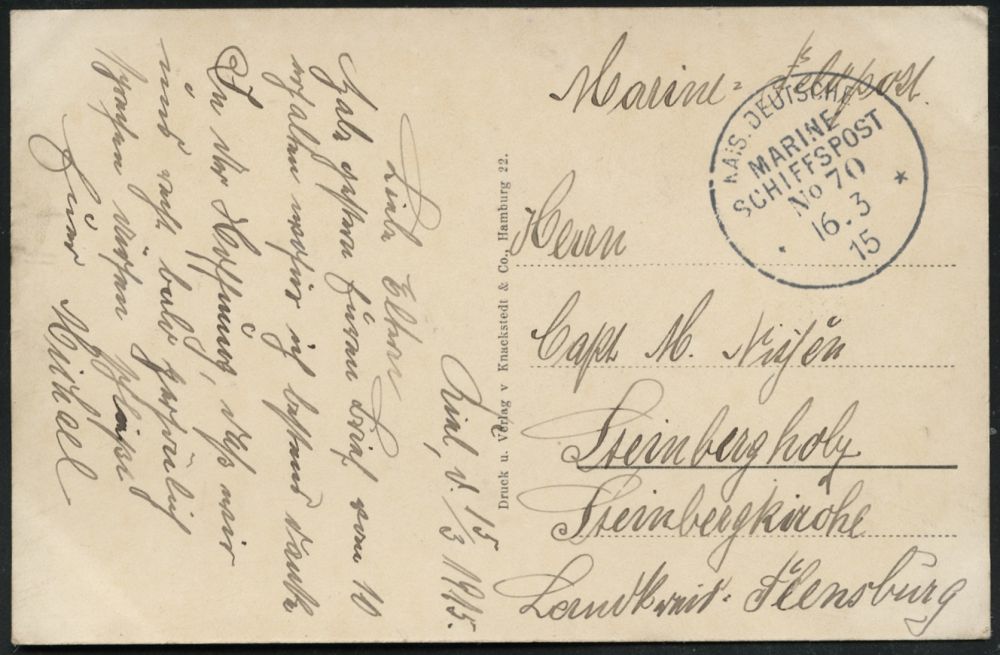 Kiel, d. 15/3 1915.
Liebe Eltern
Habe gestern Euren Brief vom 10
erhalten wofür ich bestens danke
In der Hoffnung, daß wir
uns recht bald persönlich
sprechen können
Euer Michael
Druck u. Verlag v Knackstedt & Co., Hamburg 22.
Marine-Feldpost.
KAIS. DEUTSCHE
MARINE
SCHIFFSPOST
No 70
16.3
15
Herrn
Capt M. Nissen
Steinbergholz
Steinbergkirche
Landkreis Flensburg